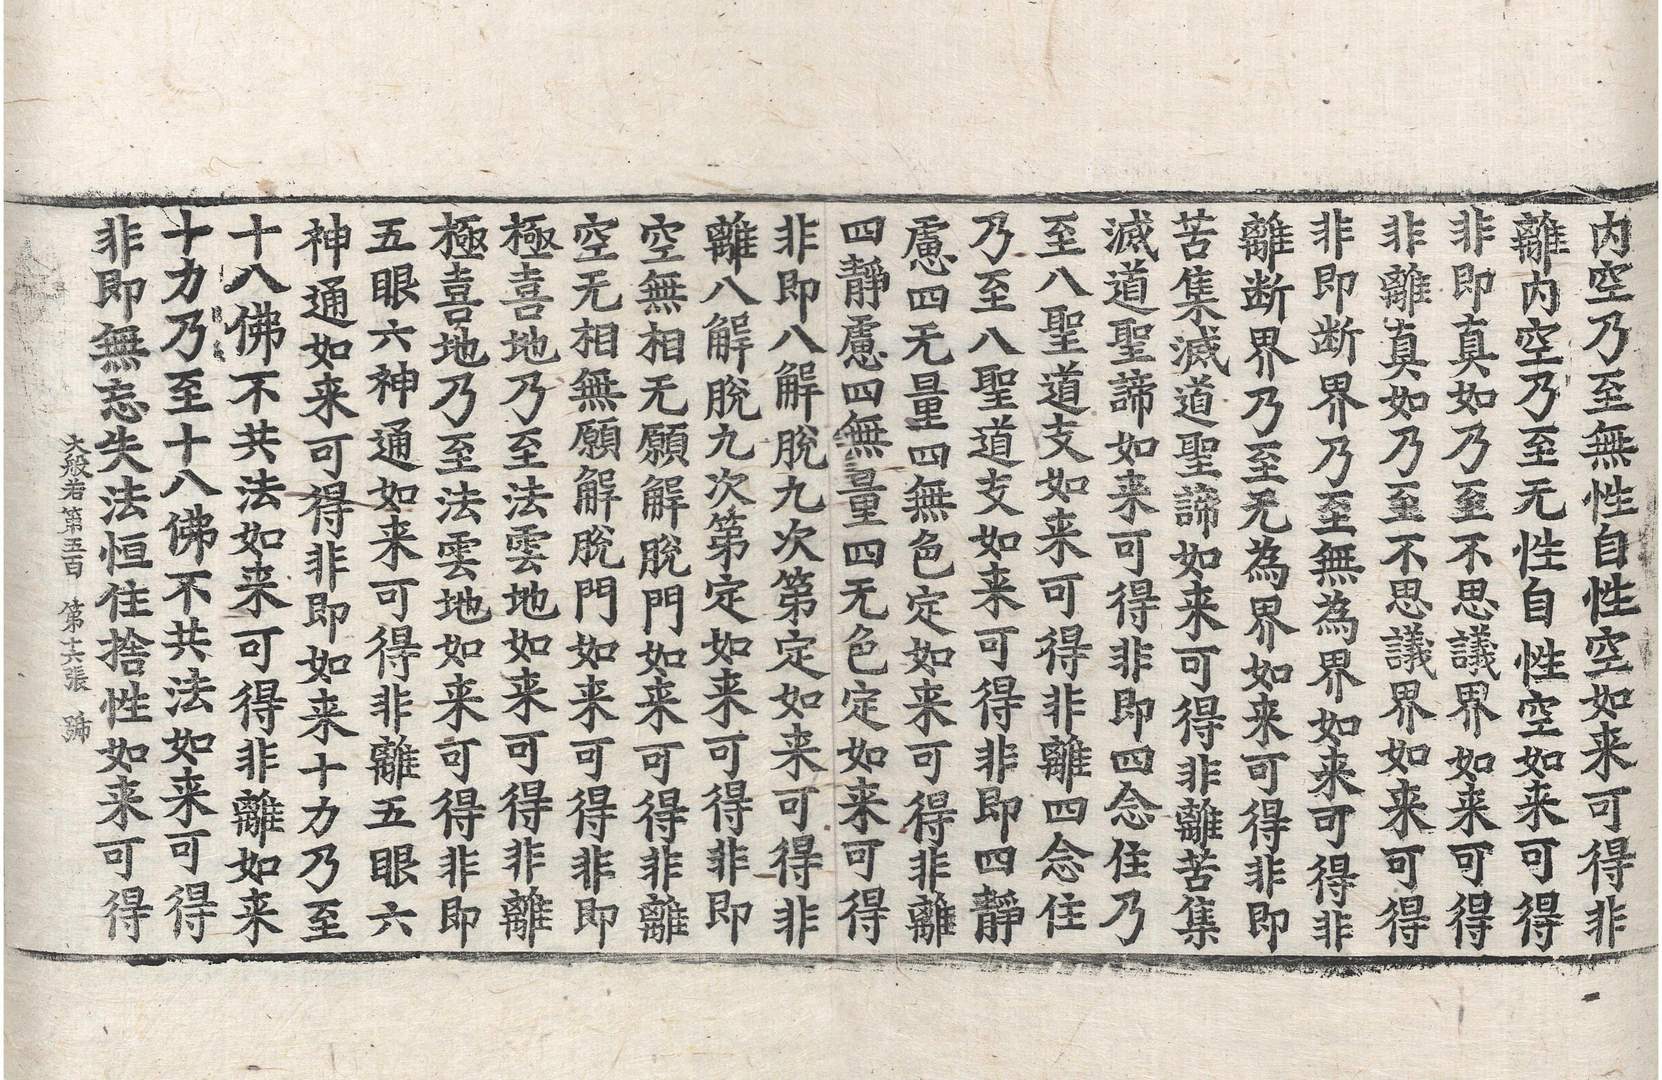 内空乃至無性自性空如来可得非
離内空乃至无性自性空如来可得
非即真如乃至不思議界如来可得
非離真如乃至不思議界如来可得
非即断界乃至無為界如来可得非
離断界乃至无為界如来可得非即
苦集滅道聖諦如来可得非離苦集
滅道聖諦如来可得非即四念住乃
至八聖道支如来可得非離四念住
乃至八聖道支如来可得非即四靜
慮四无量四無色定如来可得非離
四靜慮四無量四无色定如来可得
非即八解脫九次第定如来可得非
離八解脫九次第定如来可得非即
空無相无願解脫門如来可得非離
空无相無願解脫門如来可得非即
極喜地乃至法雲地如来可得非離
極喜地乃至法雲地如来可得非即
五眼六神通如来可得非離五眼六
神通如来可得非即如来十力乃至
十八佛不共法如来可得非離如来
十力乃至十八佛不共法如来可得
非即無忘失法恒住捨性如来可得
大般若第五百 第十六張 號